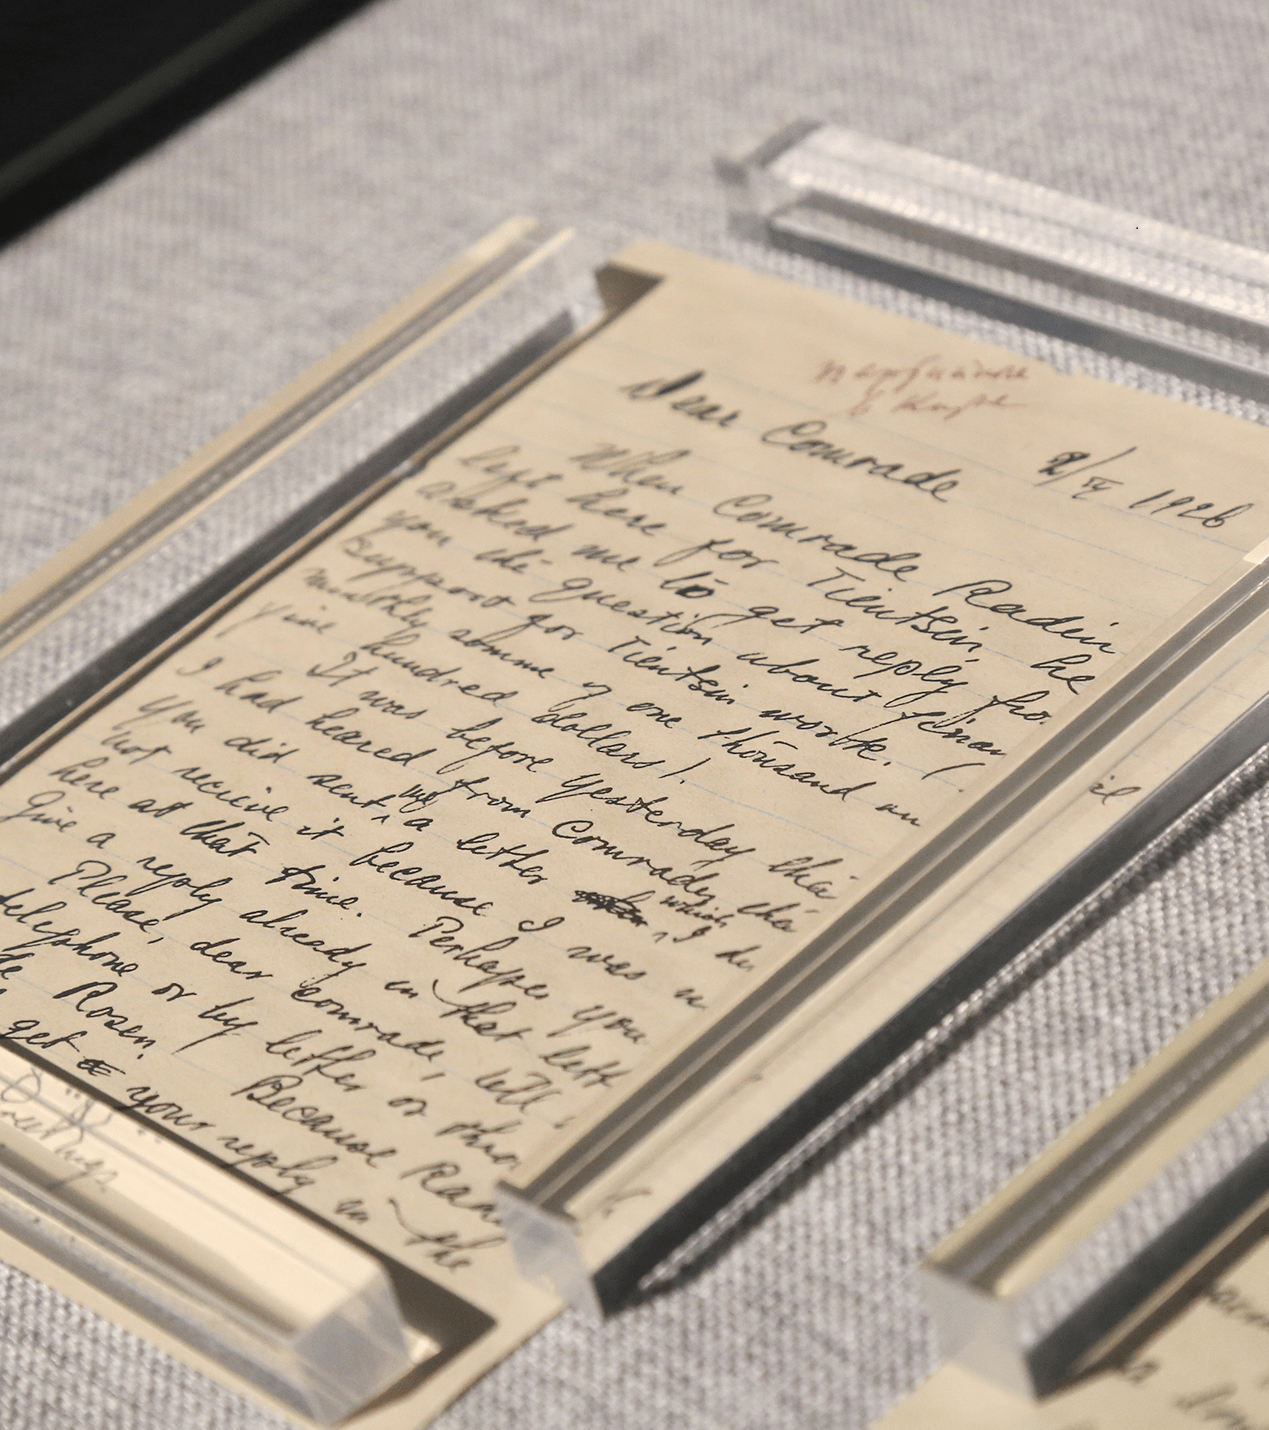 Dear Comrade
8/IV 1926
When Comrade Radin
left here for Tientsin he
asked me to get reply fro
you the question about finan
support for Tientsin worke.
monthly somme of one thousand an
five hundred dollars!
It was before yesterday tha
I had heared from Comrade, tha
you did sent me a letter which I di
not recieve it because I was n
here at that time. Perhapes you
Give a reply already in that lett
Please, dear comrade, tell
telephone or by letter or thro
Rosen. Because Rad
get your reply in the
Greetings